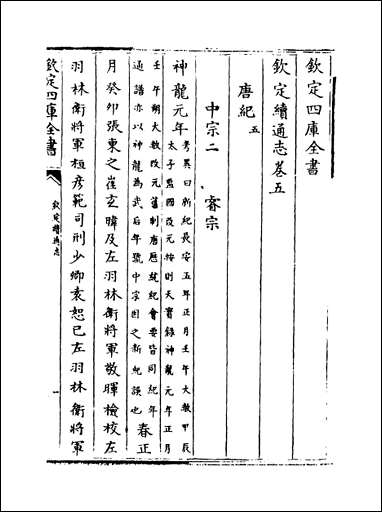 欽定四庫全書
欽定續通志卷五
唐紀五
中宗二　睿宗
神龍元年考異曰新紀長安五年正月壬午大赦甲辰
太子監國改元按則天實錄神龍元年正月
壬午朔大赦改元舊制唐歷統紀會要皆同紀年
通譜亦以神龍為武后年號中宗因之新紀誤也春正
月癸卯張柬之崔玄暐及左羽林衛將軍敬暉檢校左
羽林衛將軍桓彥範司刑少卿袁恕已左羽林衛將軍
欽定四庫全書
欽定續通志
一